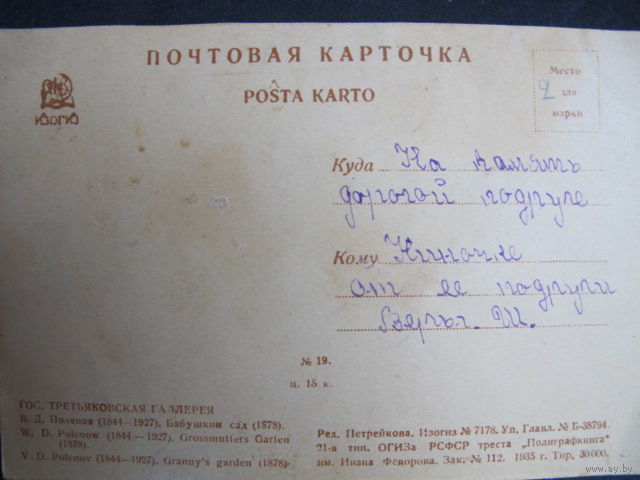 ПОЧТОВАЯ КАРТОЧКА
POŜTA KARTO
ИЗОГИЗ
Место
2 для
марки
Куда На память
дорогой подруге
Кому Ниночке
от ее подруги
Веры. Ш.
№ 19.
ц. 15 к.
ГОС. ТРЕТЬЯКОВСКАЯ ГАЛЛЕРЕЯ
В. Д. Поленов (1844—1927). Бабушкин сад (1878).
W. D. Polenow (1844—1927). Grossmutters Garten
(1878).
V. D. Polenov (1844—1927). Granny's garden (1878).
Ред. Петрейкова. Изогиз № 7178. Уп. Главл. № Б-38794.
21-я тип. ОГИЗа РСФСР треста „Полиграфкнига"
им. Ивана Федорова. Зак. № 112. 1935 г. Тир. 30000.
www.ay.by